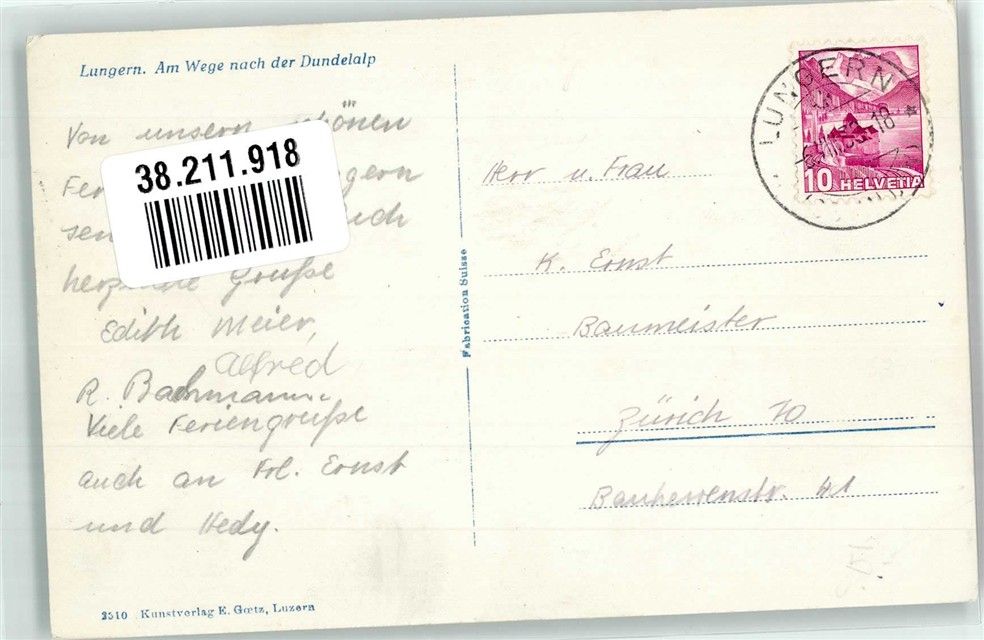 Lungern. Am Wege nach der Dundelalp
Von unsern schönen
Fer gern
sen uch
herz Grüße
Edith Meier,
Alfred
R. Bachmann.
Viele Feriengrüße
auch an Frl. Ernst
und Hedy.
38.211.918
2510 Kunstverlag E. Gœtz, Luzern
Fabrication Suisse
LUNGERN
10 HELVETIA
Herr u. Frau
K. Ernst
Baumeister
Zürich 10
Bauherrenstr. 41